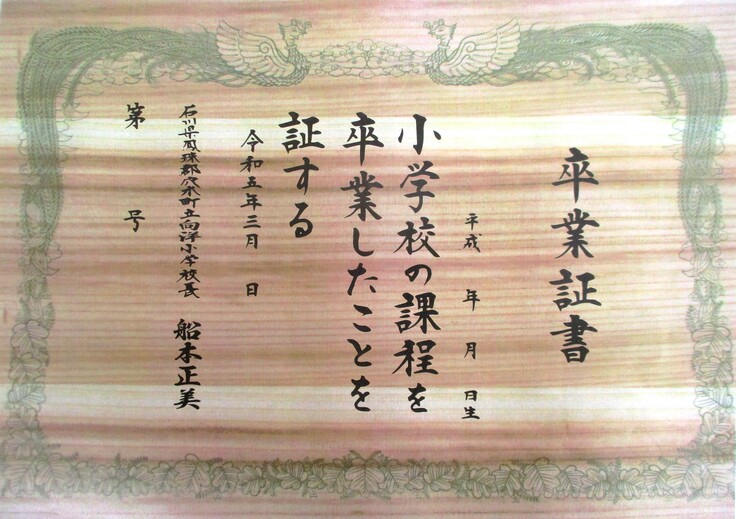 卒業証書
平成　年　月　日生
小学校の課程を
卒業したことを
証する
令和五年三月　日
石川県鳳珠郡穴水町立向洋小学校長　船本正美
第　号